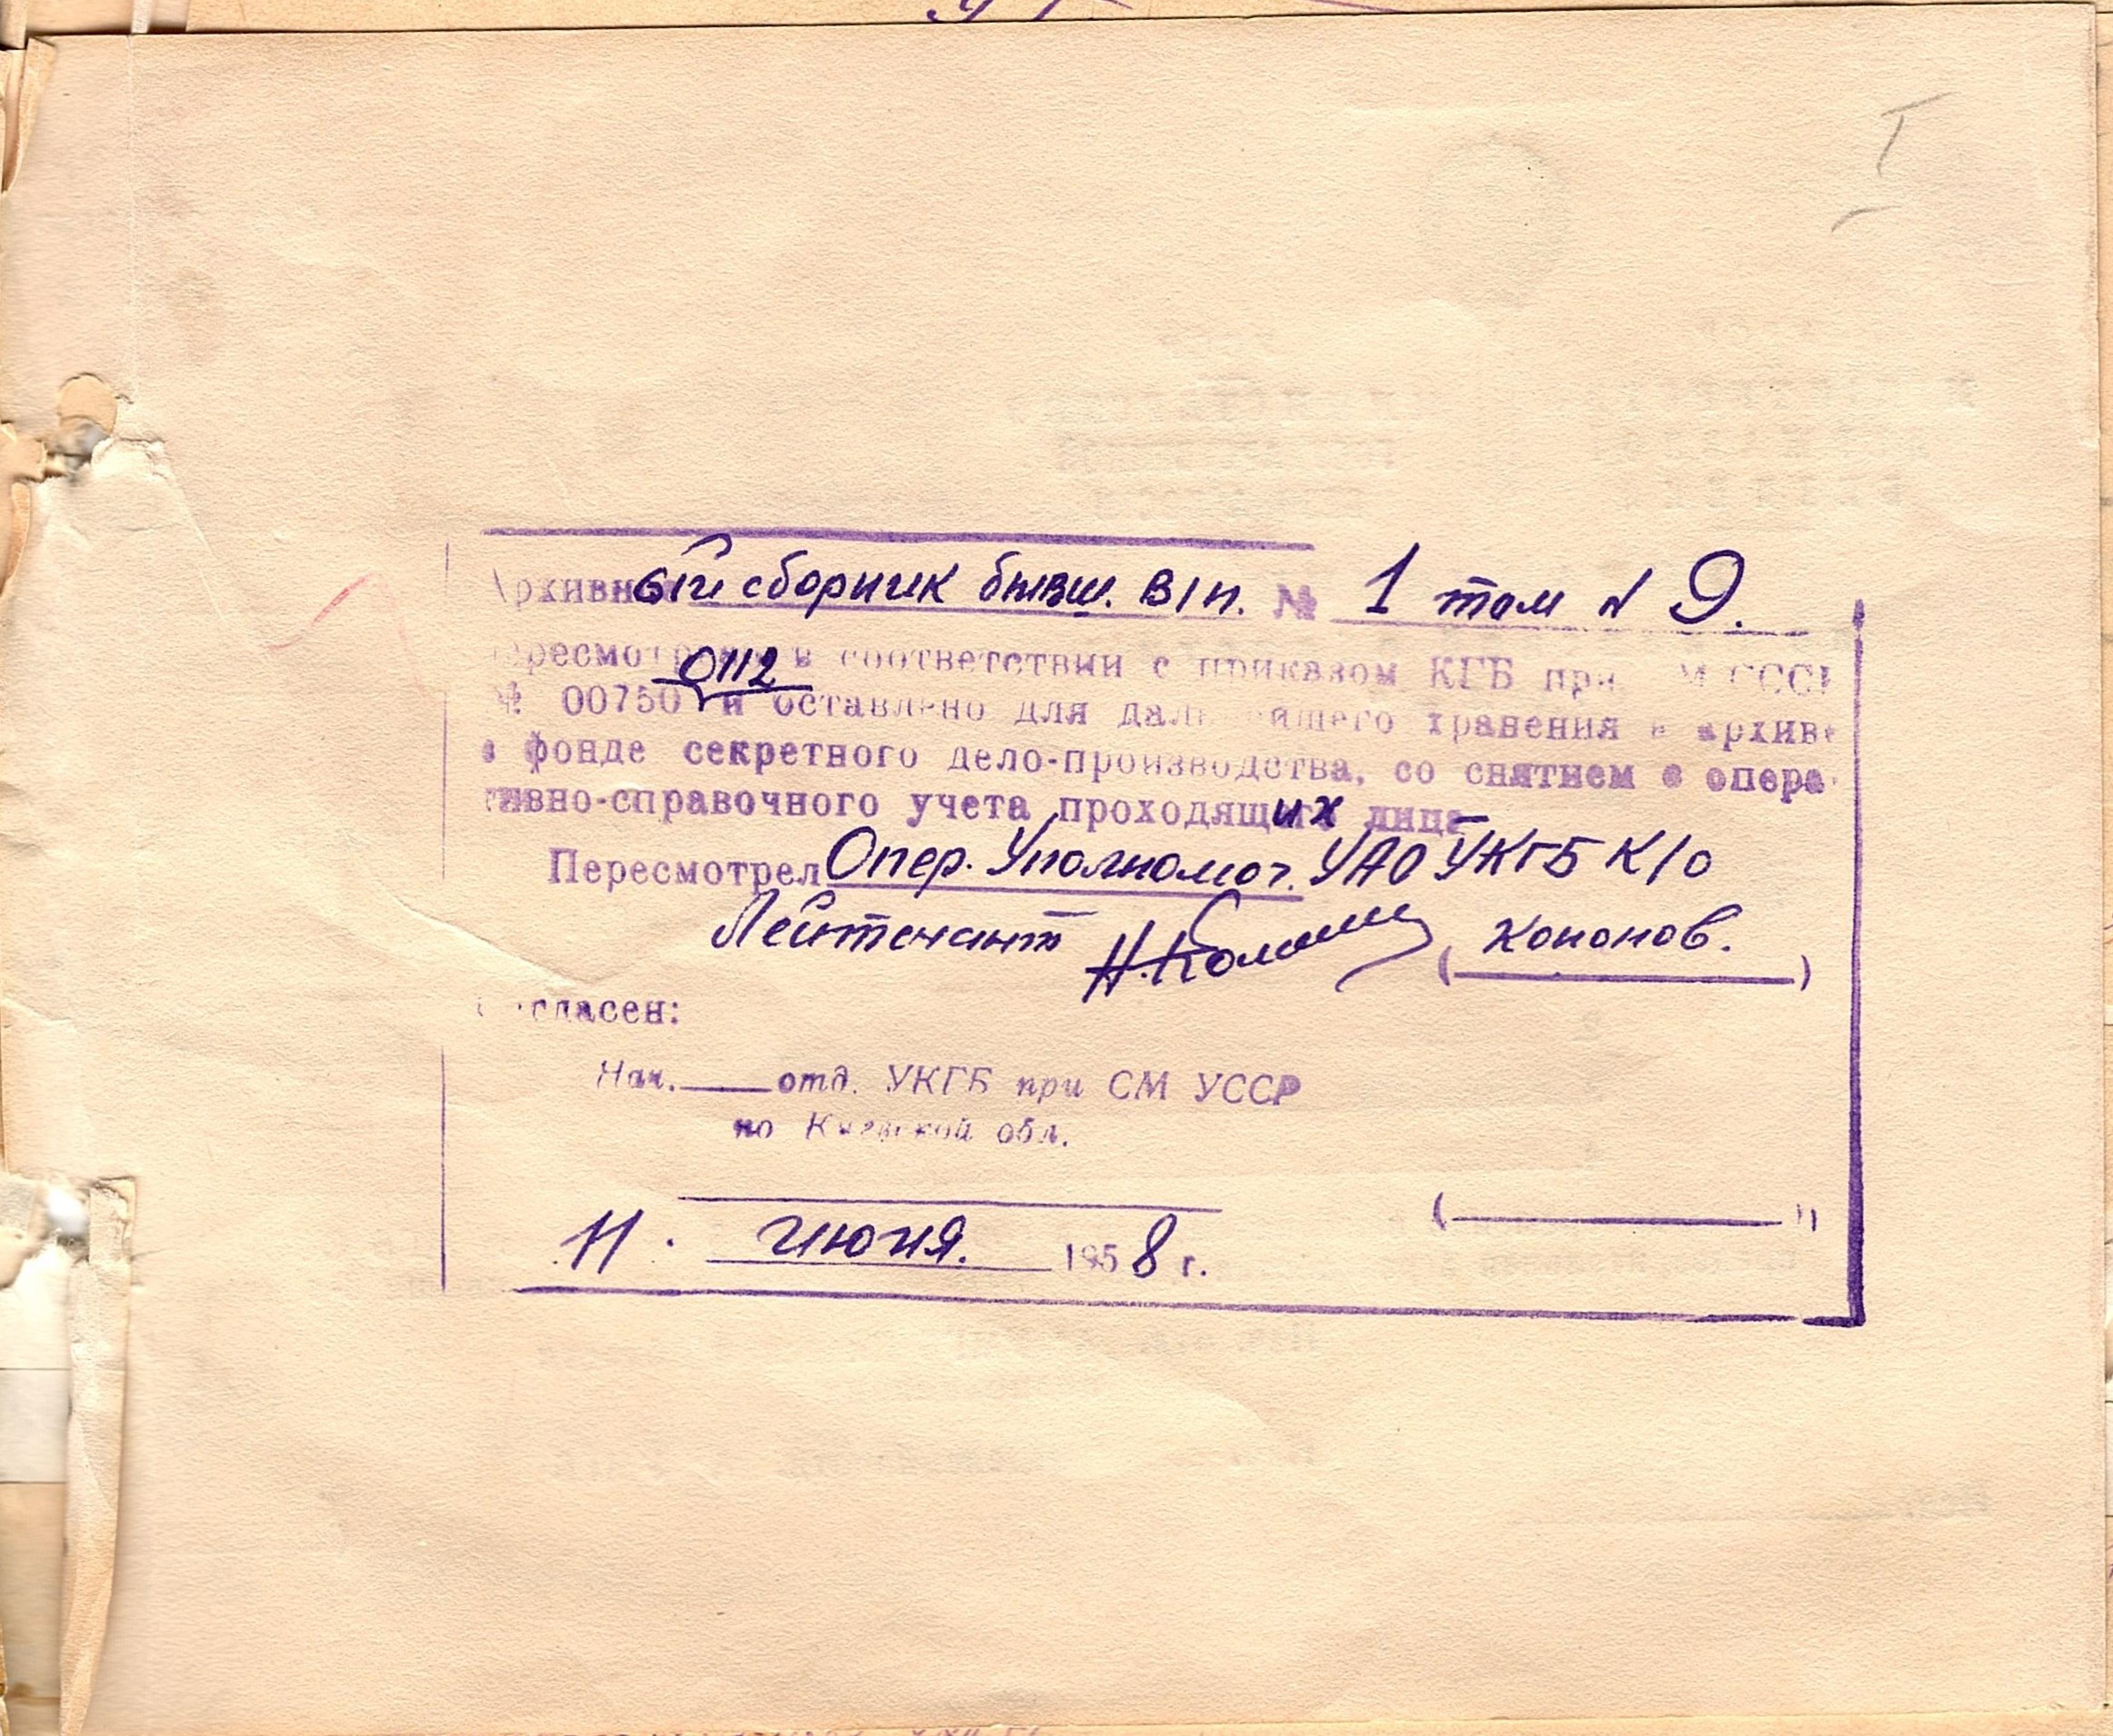 I
Архивный сборник бывш. В/п. № 1 том № 9.
0112
пересмотрено в соответствии с приказом КГБ при СМ СССР
№ 00750 и оставлено для дальнейшего хранения в архиве
в фонде секретного дело-производства, со снятием с опера-
тивно-справочного учета проходящих лиц
Пересмотрел Опер. Уполномоч. УАО УКГБ К/о
Лейтенант (Кононов.)
Согласен:
Нач. ____ отд. УКГБ при СМ УССР
по Киевской обл.
( )
11. июня. 1958 г.